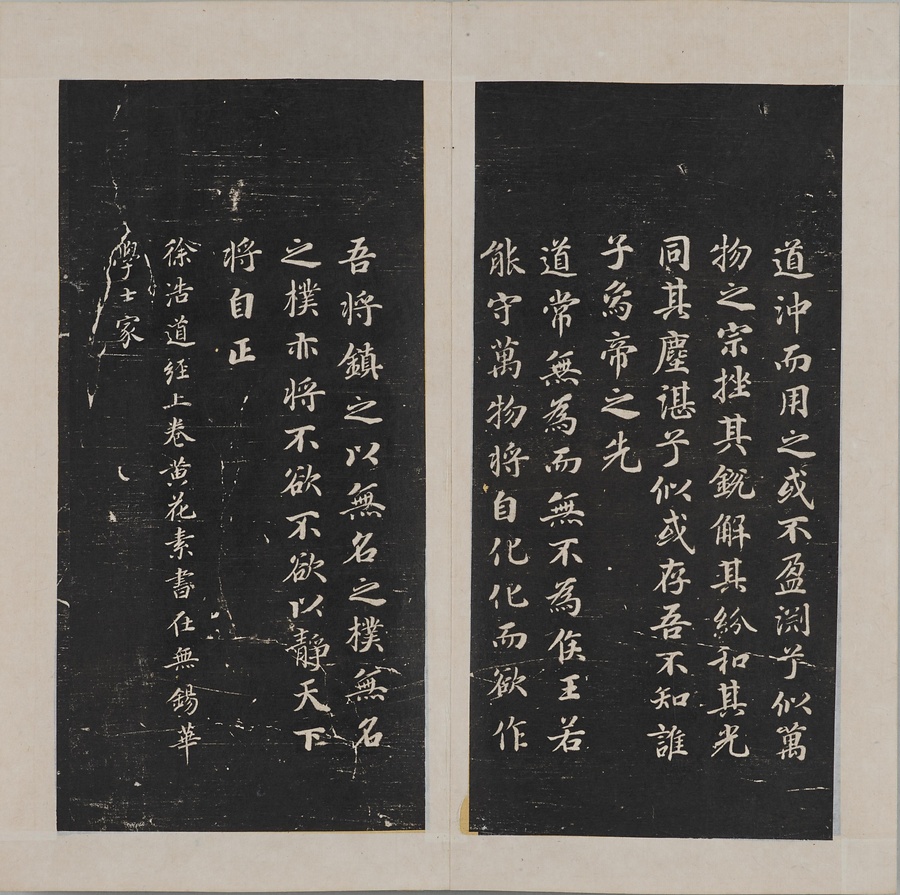 道沖而用之或不盈淵兮似萬
物之宗挫其銳解其紛和其光
同其塵湛兮似或存吾不知誰
子爲帝之先
道常無為而無不為侯王若
能守萬物將自化化而欲作
吾將鎮之以無名之樸無名
之樸亦將不欲不欲以靜天下
將自正
徐浩道經上卷黃花素書在無錫華
學士家